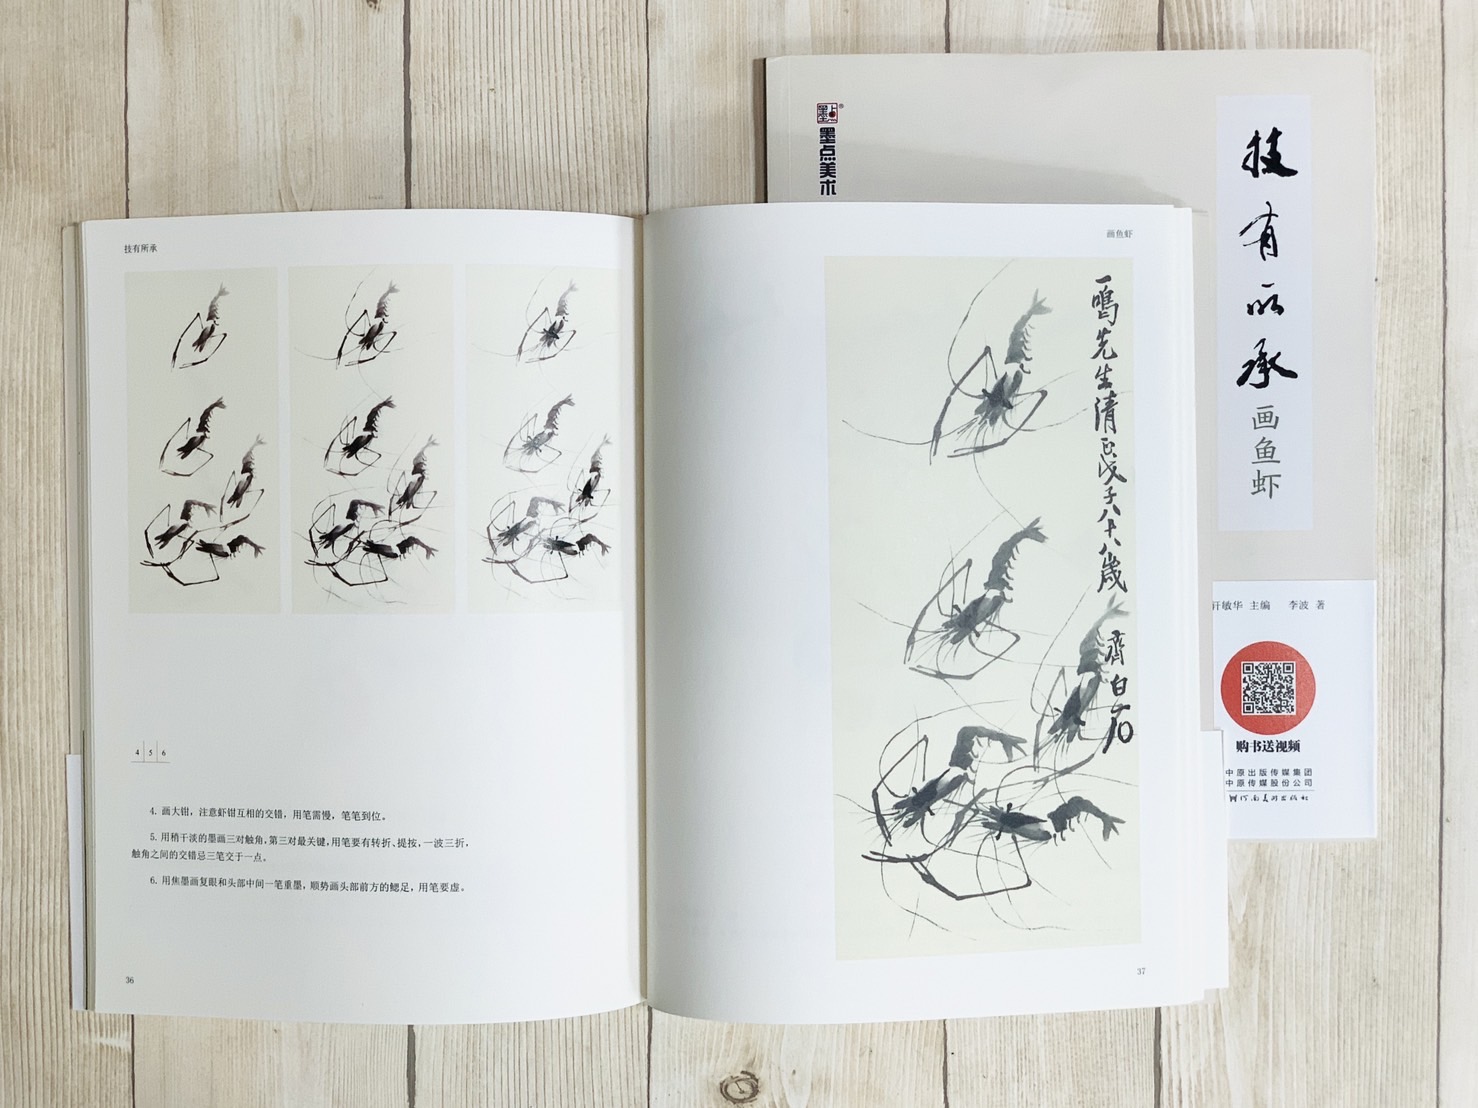 技有所承
4 5 6
4. 画大钳，注意虾钳互相的交错，用笔需慢，笔笔到位。
5. 用稍干淡的墨画三对触角，第三对最关键，用笔要有转折、提按，一波三折，
触角之间的交错忌三笔交于一点。
6. 用焦墨画复眼和头部中间一笔重墨，顺势画头部前方的鳃足，用笔要虚。
36
画鱼虾
一鸣先生清正戊子八十八歲
齊白石
37
墨点
墨点美术
技有所承
画鱼虾
敏华 主编 李波 著
购书送视频
中原出版传媒集团
中原传媒股份公司
河南美术出版社